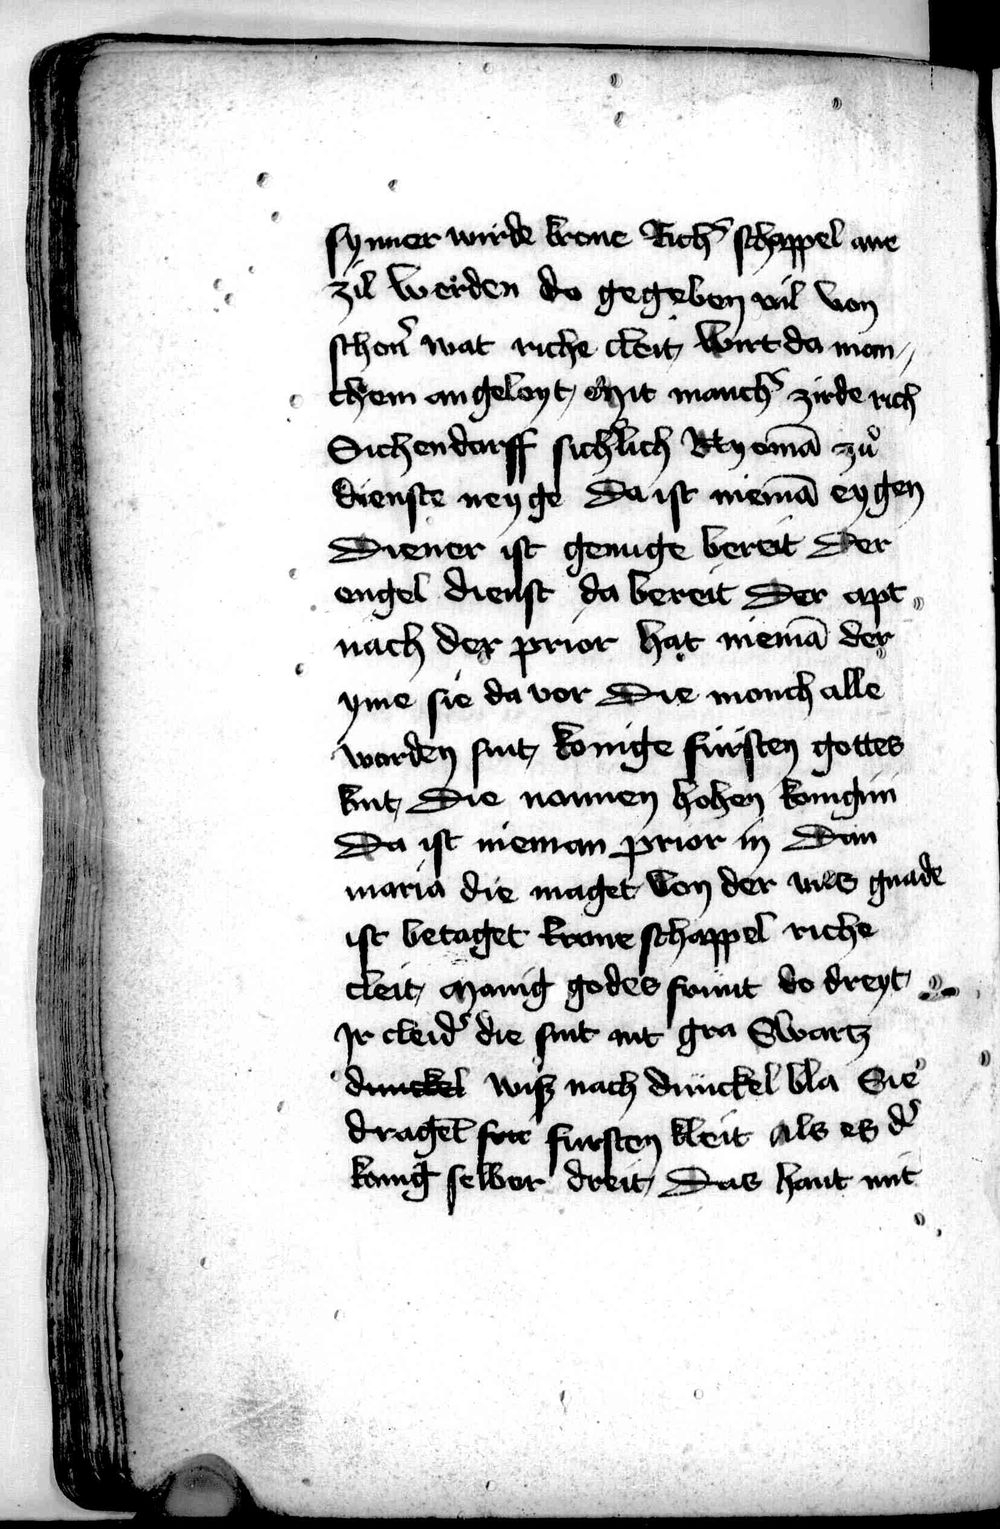 synner wirde krone Rich᷑ schappel ane
zil werden do gegeben vil von
schon᷑ wat riche cleit, wirt da man,,
chem angeleyt, Mit manch᷑ zirde rich
Sichendorff sich᷑lich Nyemā zů
dienste neyge Da ist niemā eygen
Diener ist genuge bereit Der
engel dienst da bereit Der apt
nach der prior hat niemā der
yme sie da vor Die monch alle
worden sint, konige fürsten gottes
kint, Die nonnen hohen konigin
Da ist nieman prior in Dan
maria die maget von der uns gnade
ist betaget krone schappel riche
cleit, Manig godes frunt do dreyt,
Ir cleid᷑ die sint nit gra Swartz
dunckel wiß nach dunckel bla Sie
dragē fursten kleit Als es d᷑
konig selber dreit, Das hant mit